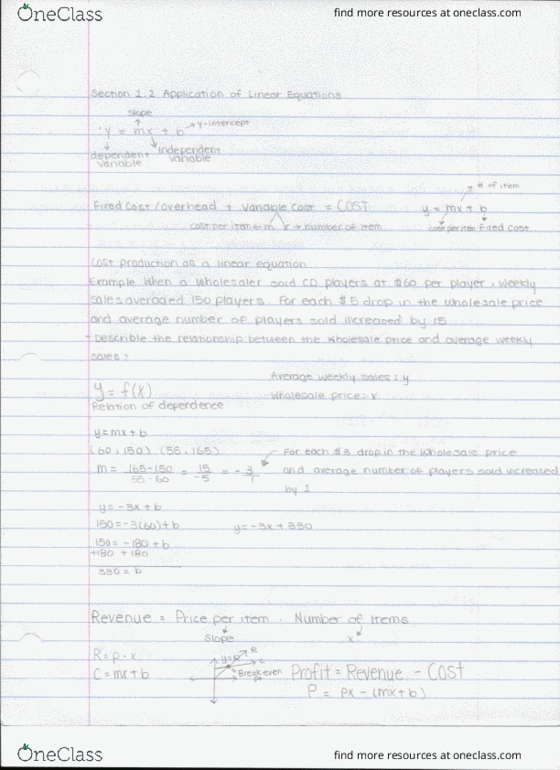 OneClass find more resources at oneclass.com
Section 1.2 Application of Linear Equations
slope
y = mx + b → y-intercept
dependent variable independent variable
# of item
Fixed Cost/overhead + Variable Cost = COST y = mx + b
cost per item ← m x → number of item cost per item Fixed Cost
Cost production as a linear equation
Example When a wholesaler sold CD players at $60 per player, weekly
sales averaged 150 players. For each $5 drop in the wholesale price
and average number of players sold increased by 15
- Describle the relationship between the wholesale price and average weekly
sales?
Average weekly sales: y
y = f(x) Wholesale price: x
Relation of dependence
y=mx+b
(60,150) (55,165) For each $3 drop in the wholesale price
m = 165-150 / 55-60 = 15 / -5 = - 3 / 1 and average number of players sold increased
by 1
y = -3x + b
150 = -3(60) + b y = -3x + 330
150 = -180 + b
+180 +180
330 = b
Revenue = Price per item · Number of Items
Slope x
R = p · x y=p R
C = mx + b C Break even Profit = Revenue - COST
P = px - (mx+b)
OneClass find more resources at oneclass.com